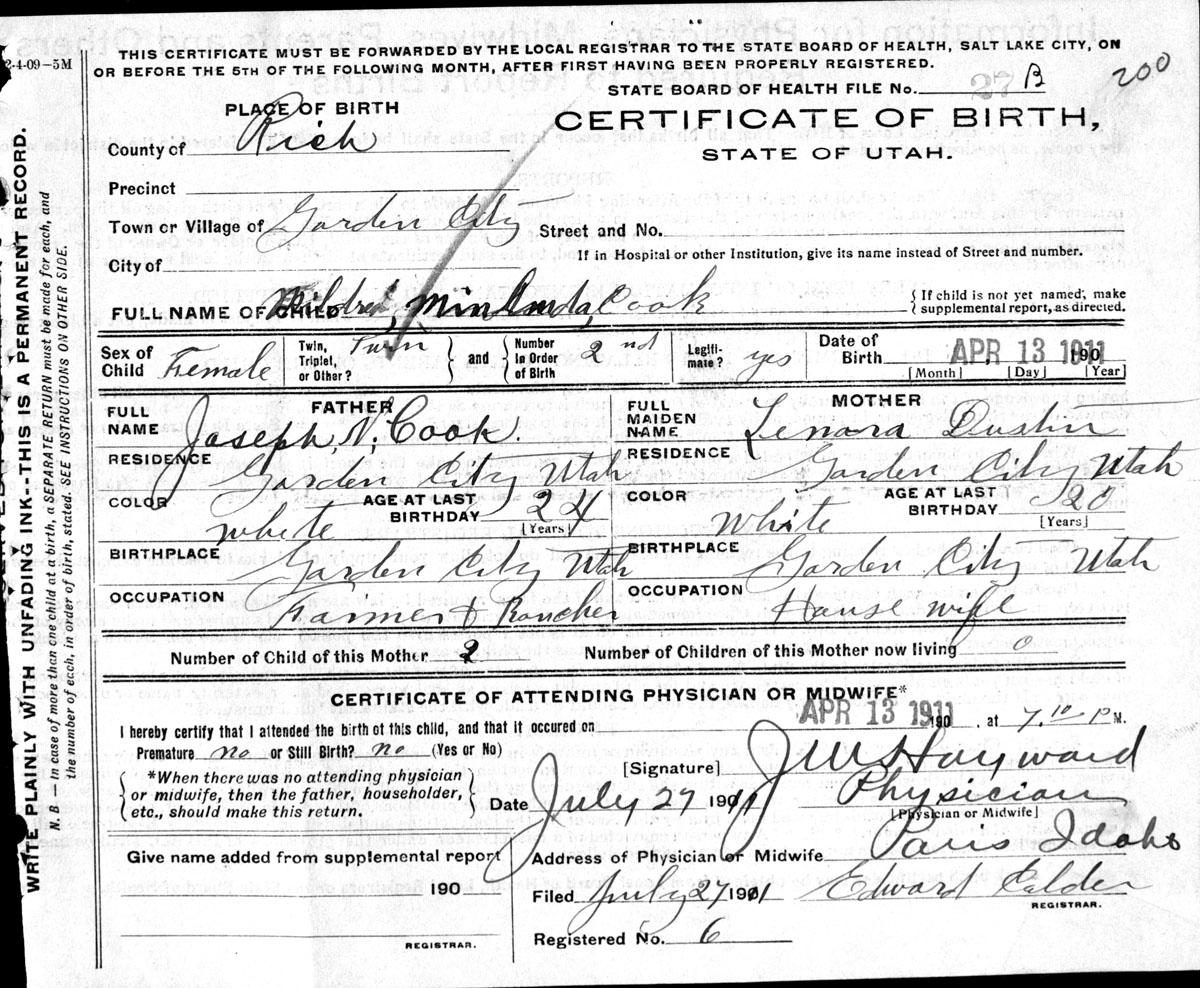 2-4-09-5M
THIS CERTIFICATE MUST BE FORWARDED BY THE LOCAL REGISTRAR TO THE STATE BOARD OF HEALTH, SALT LAKE CITY, ON
OR BEFORE THE 5TH OF THE FOLLOWING MONTH, AFTER FIRST HAVING BEEN PROPERLY REGISTERED.
200
STATE BOARD OF HEALTH FILE No. 27 B
PLACE OF BIRTH
CERTIFICATE OF BIRTH,
STATE OF UTAH.
County of Rich
Precinct
Town or Village of Garden City Street and No.
City of If in Hospital or other Institution, give its name instead of Street and number.
FULL NAME OF CHILD Mildred, Cook
{ If child is not yet named, make
supplemental report, as directed.
Sex of Child Female
Twin, Triplet, or Other? Twin
and
Number in Order of Birth 2nd
Legiti-mate? yes
Date of Birth APR 13 1911 190
[Month] [Day] [Year]
FATHER
FULL NAME Joseph N. Cook.
RESIDENCE Garden City Utah
COLOR White AGE AT LAST BIRTHDAY 24 [Years]
BIRTHPLACE Garden City Utah
OCCUPATION Farmer & Rancher
MOTHER
FULL MAIDEN NAME Lenora Dustin
RESIDENCE Garden City Utah
COLOR White AGE AT LAST BIRTHDAY 20 [Years]
BIRTHPLACE Garden City Utah
OCCUPATION House wife
Number of Child of this Mother 2 Number of Children of this Mother now living 0
CERTIFICATE OF ATTENDING PHYSICIAN OR MIDWIFE*
I hereby certify that I attended the birth of this child, and that it occured on APR 13 1911 190 , at 7.10 P M.
Premature no or Still Birth? no (Yes or No)
{ *When there was no attending physician
or midwife, then the father, householder,
etc., should make this return. }
[Signature] J W Hayward
Date July 27 1911 Physician
[Physician or Midwife]
Give name added from supplemental report
Address of Physician or Midwife Paris Idaho
190
Filed July 27 1911 Edward Calder
REGISTRAR.
REGISTRAR.
Registered No. 6
WRITE PLAINLY WITH UNFADING INK--THIS IS A PERMANENT RECORD.
N. B. — In case of more than one child at a birth, a SEPARATE RETURN must be made for each, and
the number of each, in order of birth, stated. SEE INSTRUCTIONS ON OTHER SIDE.